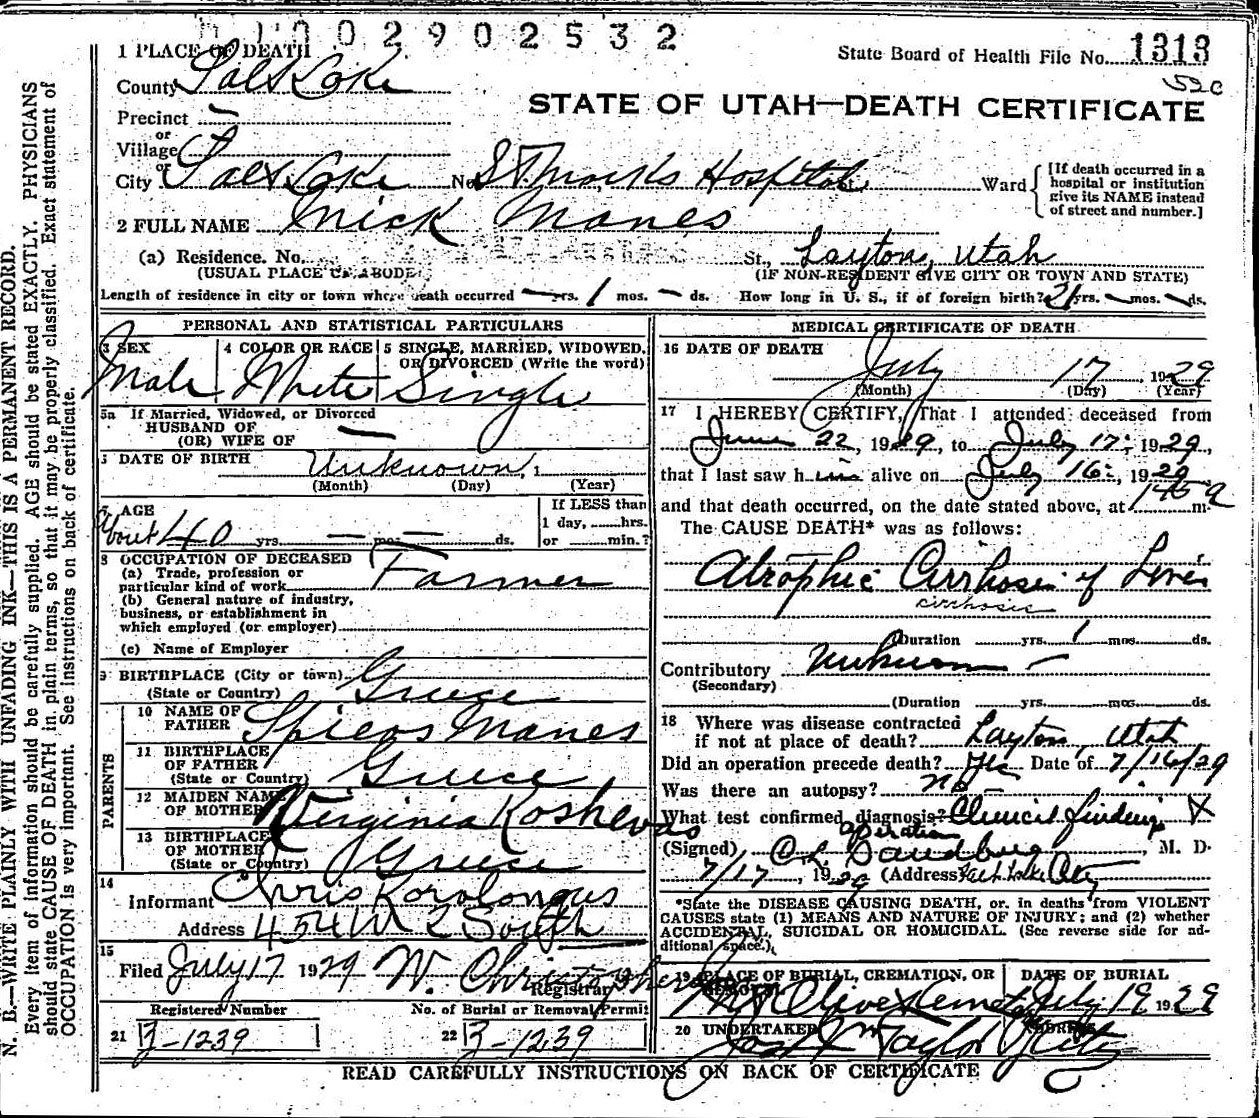 0 0 2 9 0 2 5 3 2
1 PLACE OF DEATH
State Board of Health File No. 1313
County Salt Lake
52c
STATE OF UTAH—DEATH CERTIFICATE
Precinct —
or
Village
or
City Salt Lake No. St Marks Hospital St., Ward
[If death occurred in a hospital or institution give its NAME instead of street and number.]
2 FULL NAME Nick Manes
(a) Residence. No. St., Layton, Utah
(USUAL PLACE OF ABODE) (IF NON-RESIDENT GIVE CITY OR TOWN AND STATE)
Length of residence in city or town where death occurred — yrs. 1 mos. — ds. How long in U. S., if of foreign birth? 21 yrs. — mos. — ds.
PERSONAL AND STATISTICAL PARTICULARS
3 SEX Male
4 COLOR OR RACE White
5 SINGLE, MARRIED, WIDOWED, OR DIVORCED (Write the word) Single
5a If Married, Widowed, or Divorced
HUSBAND OF
(OR) WIFE OF —
DATE OF BIRTH Unknown, 1
(Month) (Day) (Year)
AGE
About 40 yrs. — mos. — ds.
If LESS than
1 day, hrs.
or min.?
8 OCCUPATION OF DECEASED
(a) Trade, profession or
particular kind of work Farmer
(b) General nature of industry,
business, or establishment in
which employed (or employer)
(c) Name of Employer
9 BIRTHPLACE (City or town)
(State or Country) Greece
PARENTS
10 NAME OF
FATHER Spiros Manes
11 BIRTHPLACE
OF FATHER
(State or Country) Greece
12 MAIDEN NAME
OF MOTHER Virginia Koshevas
13 BIRTHPLACE
OF MOTHER
(State or Country) Greece
14
Informant Chris Korolongus
Address 454 W 2 South
15
Filed July 17 1929 W. Christopherson
Registrar
Registered Number No. of Burial or Removal Permit
21 3-1239 22 3-1239
MEDICAL CERTIFICATE OF DEATH
16 DATE OF DEATH
July 17, 1929
(Month) (Day) (Year)
17 I HEREBY CERTIFY, That I attended deceased from
June 22, 1929, to July 17, 1929,
that I last saw him alive on July 16, 1929
and that death occurred, on the date stated above, at 145 a m.
The CAUSE DEATH* was as follows:
Atrophic Cirrhosis of Liver
cirrhosis
(Duration yrs. 1 mos. ds.
Contributory Unknown —
(Secondary)
(Duration yrs. mos. ds.
18 Where was disease contracted
if not at place of death? Layton, Utah
Did an operation precede death? Yes Date of 7/16/29
Was there an autopsy? no
What test confirmed diagnosis? Clinical findings X
operation
(Signed) C L Sandberg, M. D.
7/17, 1929 (Address Salt Lake City
*State the DISEASE CAUSING DEATH, or, in deaths from VIOLENT
CAUSES state (1) MEANS AND NATURE OF INJURY; and (2) whether
ACCIDENTAL, SUICIDAL OR HOMICIDAL. (See reverse side for ad-
ditional space.)
19 PLACE OF BURIAL, CREMATION, OR REMOVAL DATE OF BURIAL
Mt Olivet Cemetery July 19 1929
20 UNDERTAKER ADDRESS
Jos Wm Taylor City
READ CAREFULLY INSTRUCTIONS ON BACK OF CERTIFICATE
N. B.—WRITE PLAINLY WITH UNFADING INK—THIS IS A PERMANENT RECORD.
Every item of information should be carefully supplied. AGE should be stated EXACTLY. PHYSICIANS
should state CAUSE OF DEATH in plain terms, so that it may be properly classified. Exact statement of
OCCUPATION is very important. See instructions on back of certificate.